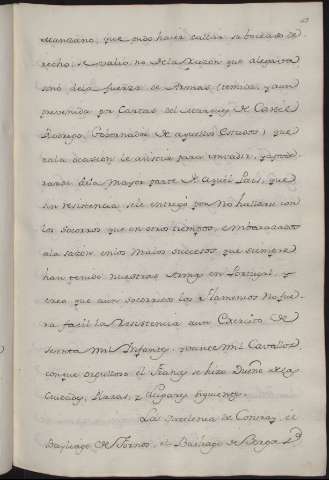 Manzano, que pudo hacer callar su buscado de
recho, se valio no de la razon que alegava
sino de la fuerza de Armas (temida, y aun
prevenida por Cartas del Marques de Castel
Rodrigo, Gobernador de aquellos Estados) que
en la ocasion le asistia para invadir, y apode
rarse de la mayor parte de aquel Pais, que
sin resistencia, se le entregó por no hallarse con
los socorros que en otros tiempos, embarazados
a la sazon en los malos sucessos, que siempre
han tenido nuestras Armas en Portugal, y
creo que aun socorridos los Flamencos no fue
ra facil la resistencia a un Exercito de
setenta mil Infantes, y once mil Cavallos
con que orgulloso el Frances se hizo Dueño de las
Ciudades, Plazas, y Lugares siguientes.
La de
Bayliage de Fornos, el Bayliage de Berga S.